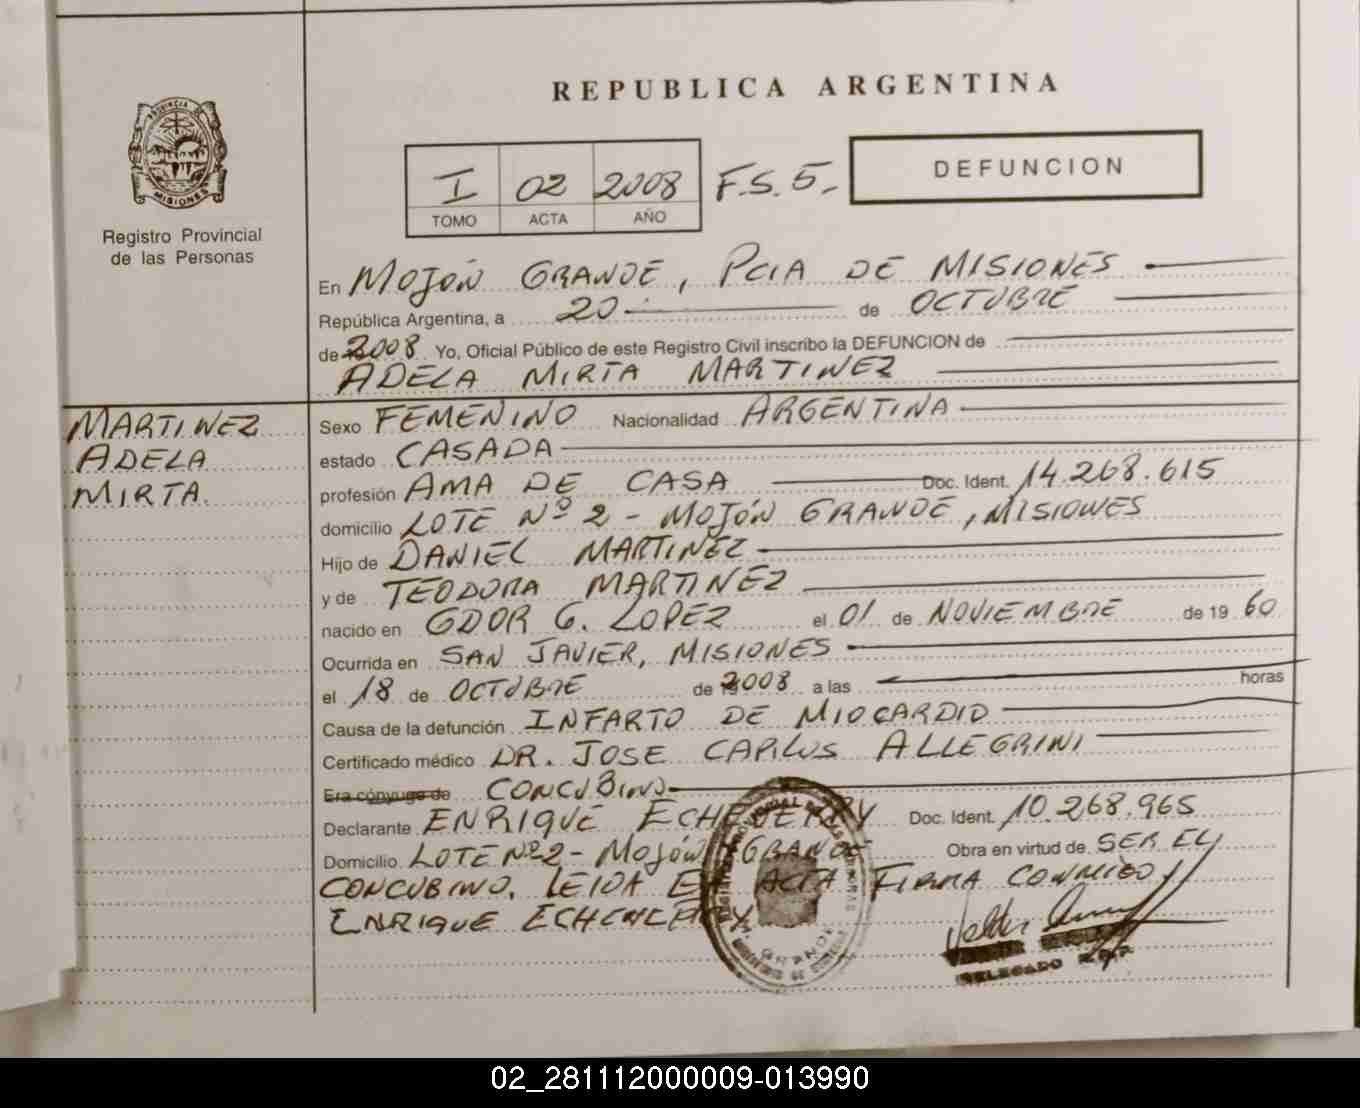 REPUBLICA ARGENTINA
PROVINCIA DE
MISIONES
Registro Provincial
de las Personas
I 02 2008 F.S. 5.-
TOMO ACTA AÑO
DEFUNCION
En MOJÓN GRANDE, PCIA DE MISIONES
República Argentina, a 20 de OCTUBRE
de 2008 Yo, Oficial Público de este Registro Civil inscribo la DEFUNCION de
ADELA MIRTA MARTINEZ
MARTINEZ
ADELA
MIRTA.
Sexo FEMENINO Nacionalidad ARGENTINA
estado CASADA
profesión AMA DE CASA Doc. Ident. 14.268.615
domicilio LOTE Nº 2 - MOJÓN GRANDE, MISIONES
Hijo de DANIEL MARTINEZ
y de TEODORA MARTINEZ
nacido en GDOR G. LOPEZ el 01 de NOVIEMBRE de 19 60
Ocurrida en SAN JAVIER, MISIONES
el 18 de OCTUBRE de 2008 a las horas
Causa de la defunción INFARTO DE MIOCARDIO
Certificado médico DR. JOSE CARLOS ALLEGRINI
Era cónyuge de CONCUBINO
Declarante ENRIQUE Doc. Ident. 10.268.965
Domicilio LOTE Nº2 - MOJÓN GRANDE Obra en virtud de SER EL
CONCUBINO. LEIDA EL ACTA FIRMA CONMIGO
ENRIQUE
GRANDE
DELEGADO R.P.P.
02_281112000009-013990